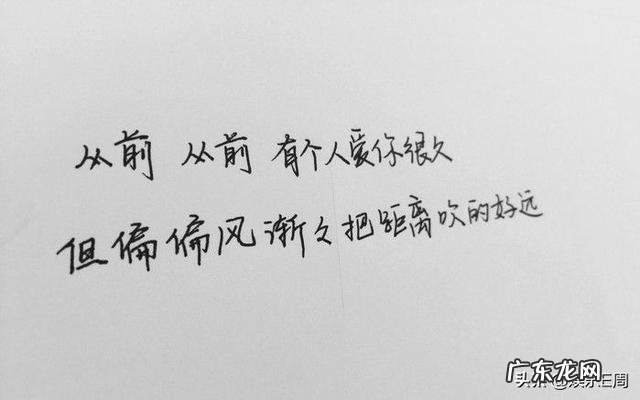 从前 从前 有个人爱你很久
但偏偏风渐々把距离吹的好远
广东龙网
头条@娱乐三周